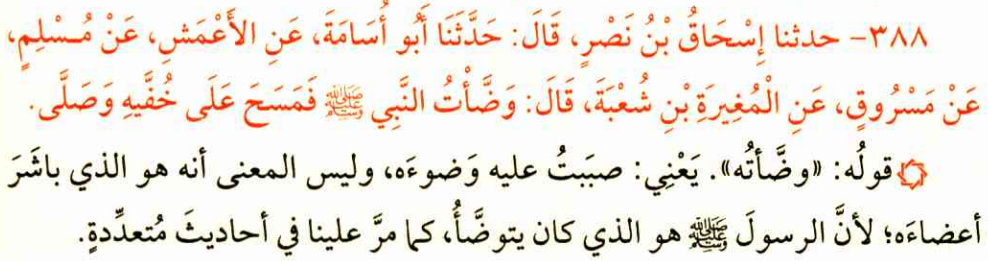 ٣٨٨- حدثنا إِسْحَاقُ بْنُ نَصْرٍ، قَالَ: حَدَّثَنَا أَبُو أُسَامَةَ، عَنِ الأَعْمَشِ، عَنْ مُسْلِمٍ،
عَنْ مَسْرُوقٍ، عَنِ الْمُغِيرَةِ بْنِ شُعْبَةَ، قَالَ: وَضَّأْتُ النَّبِي ﷺ فَمَسَحَ عَلَى خُفَّيهِ وَصَلَّى.
قولُه: «وضَّأتُه». يَعْنِي: صبَبتُ عليه وَضوءَه، وليس المعنى أنه هو الذي باشَرَ
أعضاءَه؛ لأنَّ الرسولَ ﷺ هو الذي كان يتوضَّأُ، كما مرَّ علينا في أحاديثَ مُتعدِّدةٍ.